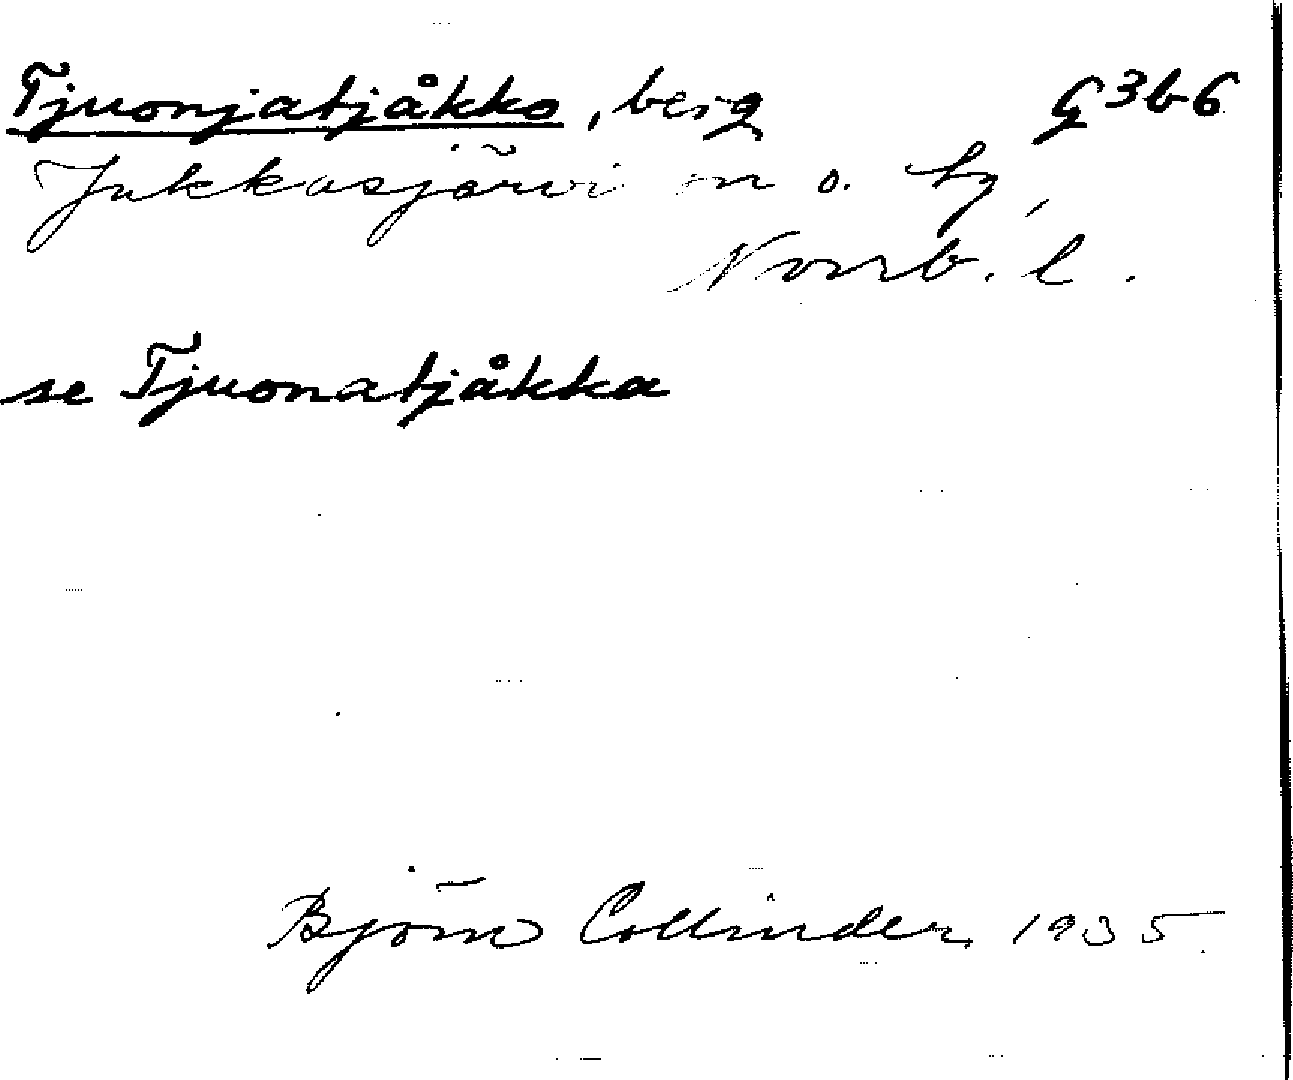 Tjuonjatjåkko, berg G3b6
Jukkasjärvi sn o. tg,
Norrb. l.
se Tjuonatjåkka
Björn Collinder 1935.